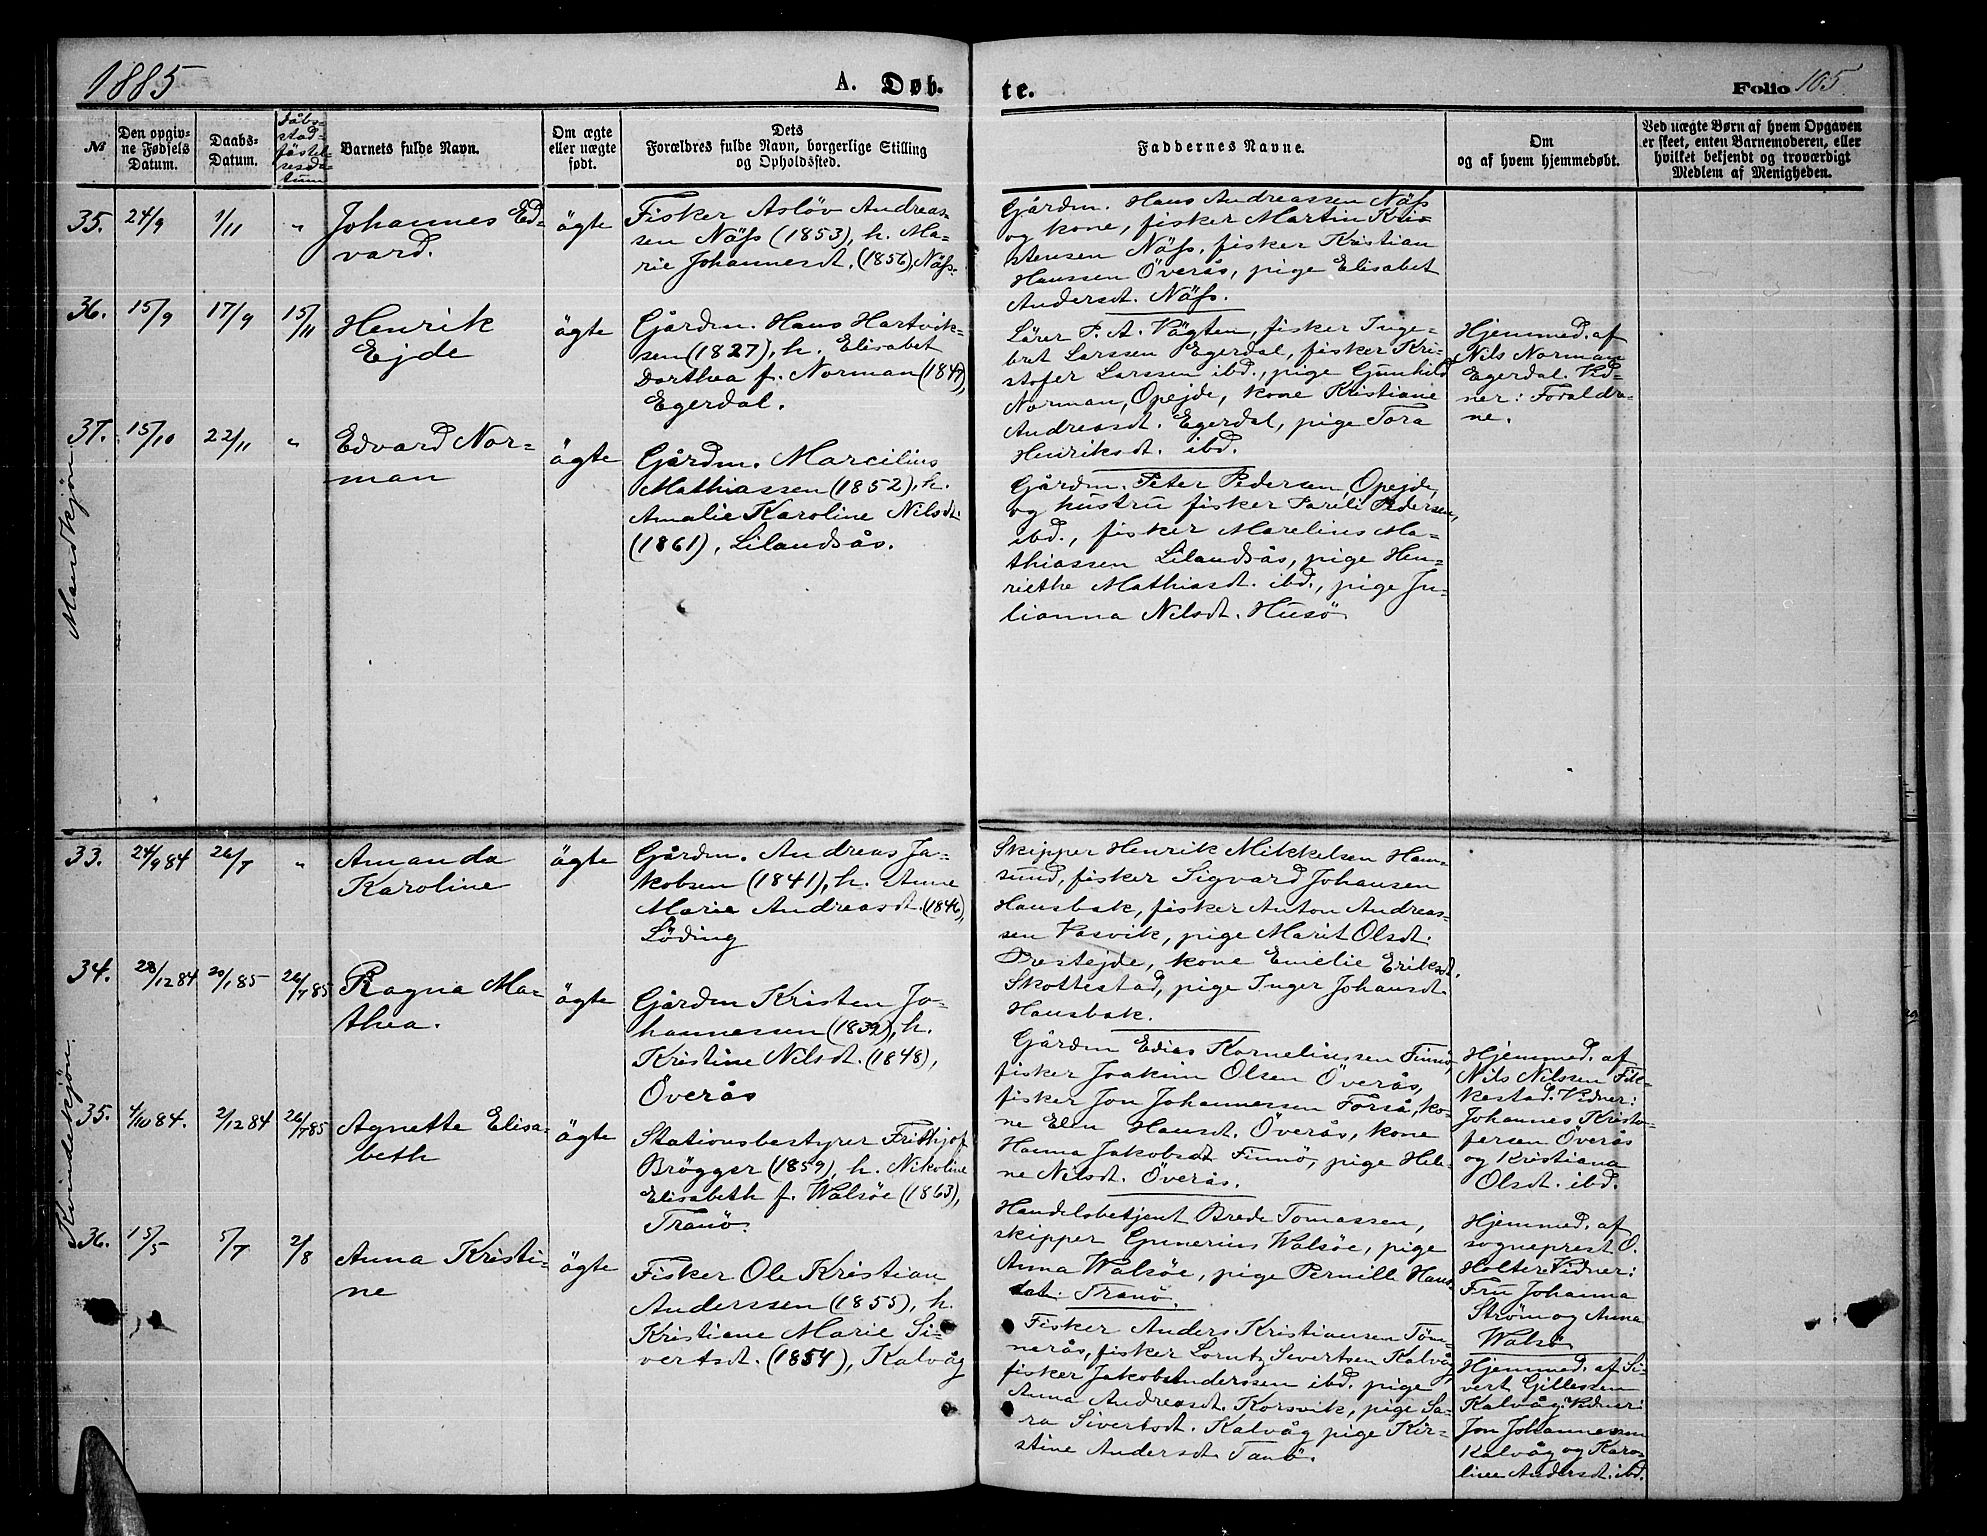 1885
A. Døb.
te.
Folio 105
№
Den opgiv-
ne Fødsels
Datum.
Daabs-
Datum.
Dåbs-
stad-
fästel-
sesda-
tum
Barnets fulde Navn.
Om ægte
eller uægte
født.
Dets
Forældres fulde Navn, borgerlige Stilling
og Opholdssted.
Faddernes Navne.
Om
og af hvem hjemmedøbt.
Ved uægte Børn af hvem Opgaven
er skeet, enten Barnemoderen, eller
hvilket bekjendt og troværdigt
Medlem af Menigheden.
Mandkjön.
35. 24/9 1/11 "
Johannes Ed-
vard.
ägte
Fisker Aslöv Andreas-
sen Näss (1853), h. Ma-
rie Johannesdt. (1856), Näss.
Gårdm. Hans Andreassen Näss
og kone, fisker Martin Kri-
stensen Näss, fisker Kristian
Hanssen Överås, pige Elisabet
Andersdt. Näss.
36. 15/9 17/9 15/11
Henrik
Ejde
ägte
Gårdm. Hans Hartvik-
sen (1827), h. Elisabet
Dorthea f. Norman (1847),
Egerdal.
Lärer P. A. Vägten, fisker Inge-
bret Larssen Egerdal, fisker Kri-
stofer Larssen ibd., pige Gunhild
Norman, Opejde, kone Kristiane
Andreasdt. Egerdal, pige Tora
Henriksdt. ibd.
Hjemmed. af
Nils Norman
Egerdal. Vid-
ner: Foraldre-
ne.
37. 15/10 22/11 "
Edvard Nor-
man
ägte
Gårdm. Marcilius
Mathiassen (1852), h.
Amalie Karoline Nilsdt.
(1861), Lilandsås.
Gårdm. Peter Pedersen, Opejde,
og hustru fisker Pareli Pedersen,
ibd., fisker Marelius Ma-
thiassen Lilandsås, pige Hen-
riethe Mathiasdt. ibd., pige Ju-
lianna Nilsdt. Husö
Kvindekjön.
33. 24/9 84 26/7 "
Amanda
Karoline
ägte
Gårdm. Andreas Ja-
kobsen (1841), h. Anne
Marie Andreasdt. (1846),
Löding
Skipper Henrik Mikkelsen Ham-
sund, fisker Sigvard Johansen
Hansbak, fisker Anton Andreas-
sen Vasvik, pige Marit Olsdt.
Prestejde, kone Emelie Eriksdt.
Skottestad, pige Inger Johansdt.
Hansbak.
34. 28/12 84 20/1 85 26/7 85
Ragna Mar-
thea.
ägte
Gårdm Kristen Jo-
hannessen (1839), h.
Kristine Nilsdt. (1848),
Överås
Gårdm Edias Korneliussen Finnö,
fisker Joakim Olsen Överås,
fisker Jon Johannessen Forså, ko-
ne Elen Hansdt. Överås, kone
Hanna Jakobsdt Finnö, pige Hele-
ne Nilsdt. Överås.
Hjemmed. af
Nils Nilssen Fil-
kestad. Vidner:
Johannes Kristo-
fersen Överås
og Kristiana
Olsdt. ibd.
35. 4/10 84. 2/12 84 26/7 85
Agnette Elisa-
beth
ägte
Stationsbestyrer Fridthjof
Brögger (1859), h. Nikoline
Elisabeth f. Walsöe (1863),
Tranö.
Handelsbetjent Brede Tomassen,
skipper Gunerius Walsöe, pige
Anna Walsöe, pige Pernille Hans-
dat. Tranö.
Hjemmed. af
sogneprest O.
Holter. Vidner:
Fru Johanna
Ström og Anna
Walsö
36. 15/5 5/7 2/8
Anna Kristi-
ne
ägte
Fisker Ole Kristian
Anderssen (1855), h.
Kristiane Marie Si-
vertsdt. (1854), Kalvåg
Fisker Anders Kristiansen Töm-
merås, fisker Lorntz Sivertsen Kalvåg,
fisker Jakob Anderssen ibd. pige
Anna Andreasdt. Korsvik, pige Sa-
ra Sivertsdt. Kalvåg pige Kir-
stine Andersdt. Tanö.
Hjemmed. af Si-
vert Gillessen
Kalvåg. Vidner:
Jon Johannessen
Kalvåg og Karo-
line Andersdt. ibd.